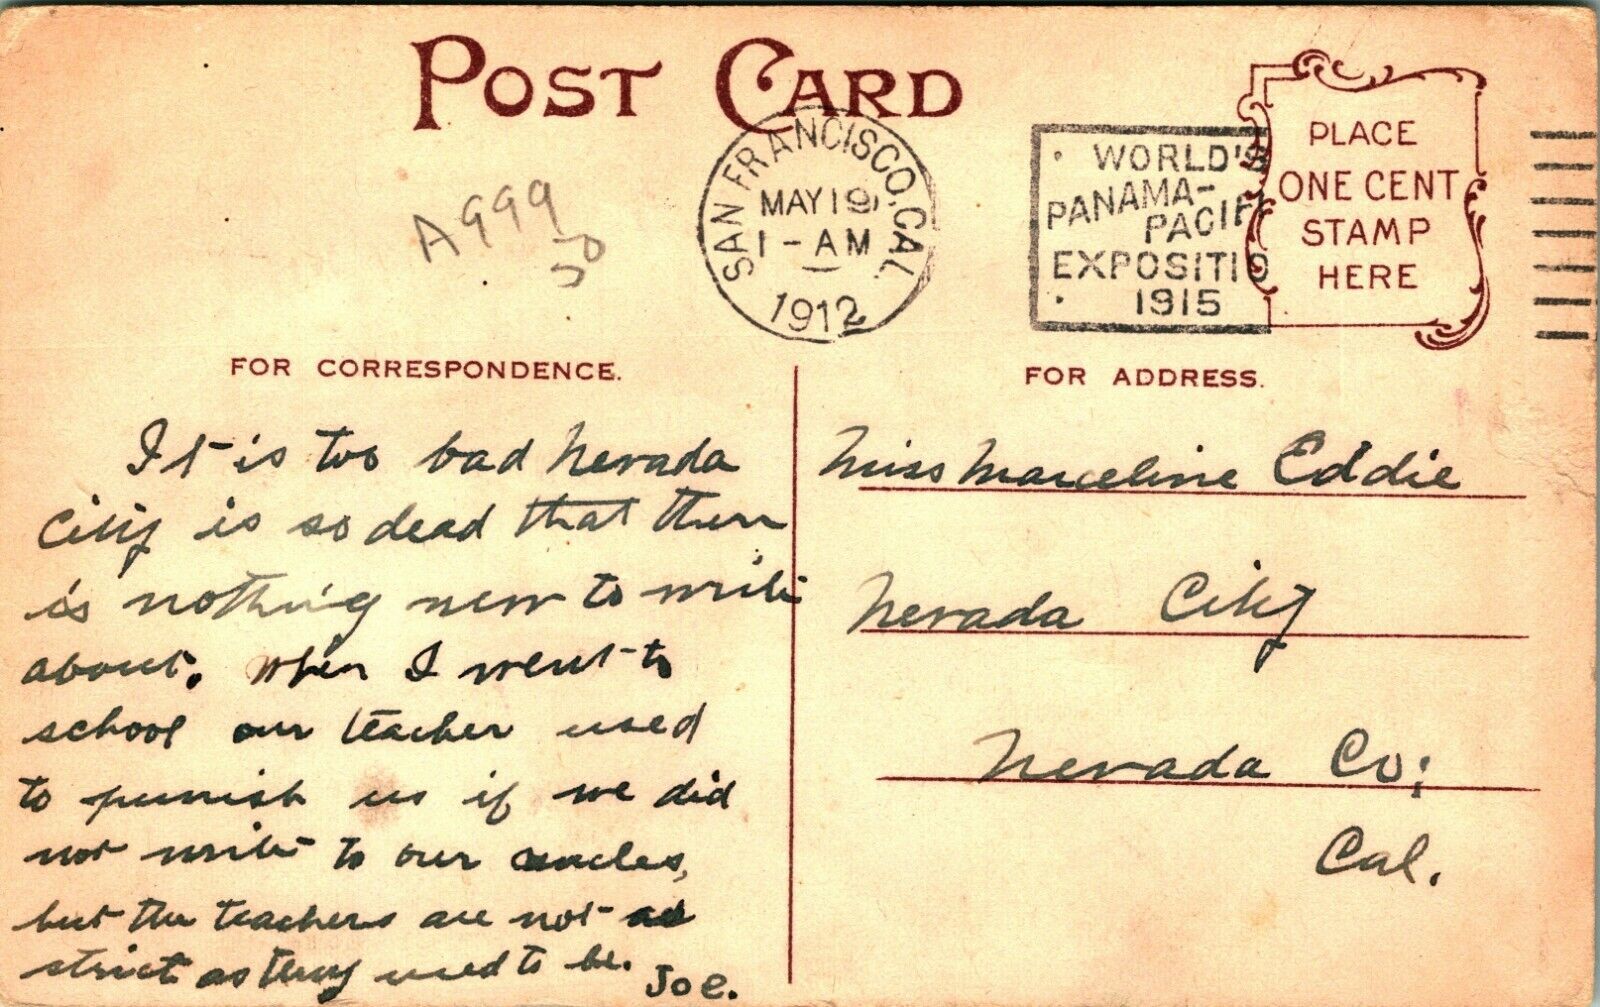 POST CARD
A999
50
SAN FRANCISCO, CAL.
MAY 19
1-AM
1912
WORLD'S
PANAMA-
PACIFI
EXPOSITIO
1915
PLACE
ONE CENT
STAMP
HERE
FOR CORRESPONDENCE.
It is too bad Nevada
City is so dead that there
is nothing new to write
about. When I went to
school our teacher used
to punish us if we did
not write to our uncles,
but the teachers are not as
strict as they used to be. Joe.
FOR ADDRESS.
Miss Marceline Eddie
Nevada City
Nevada Co;
Cal.